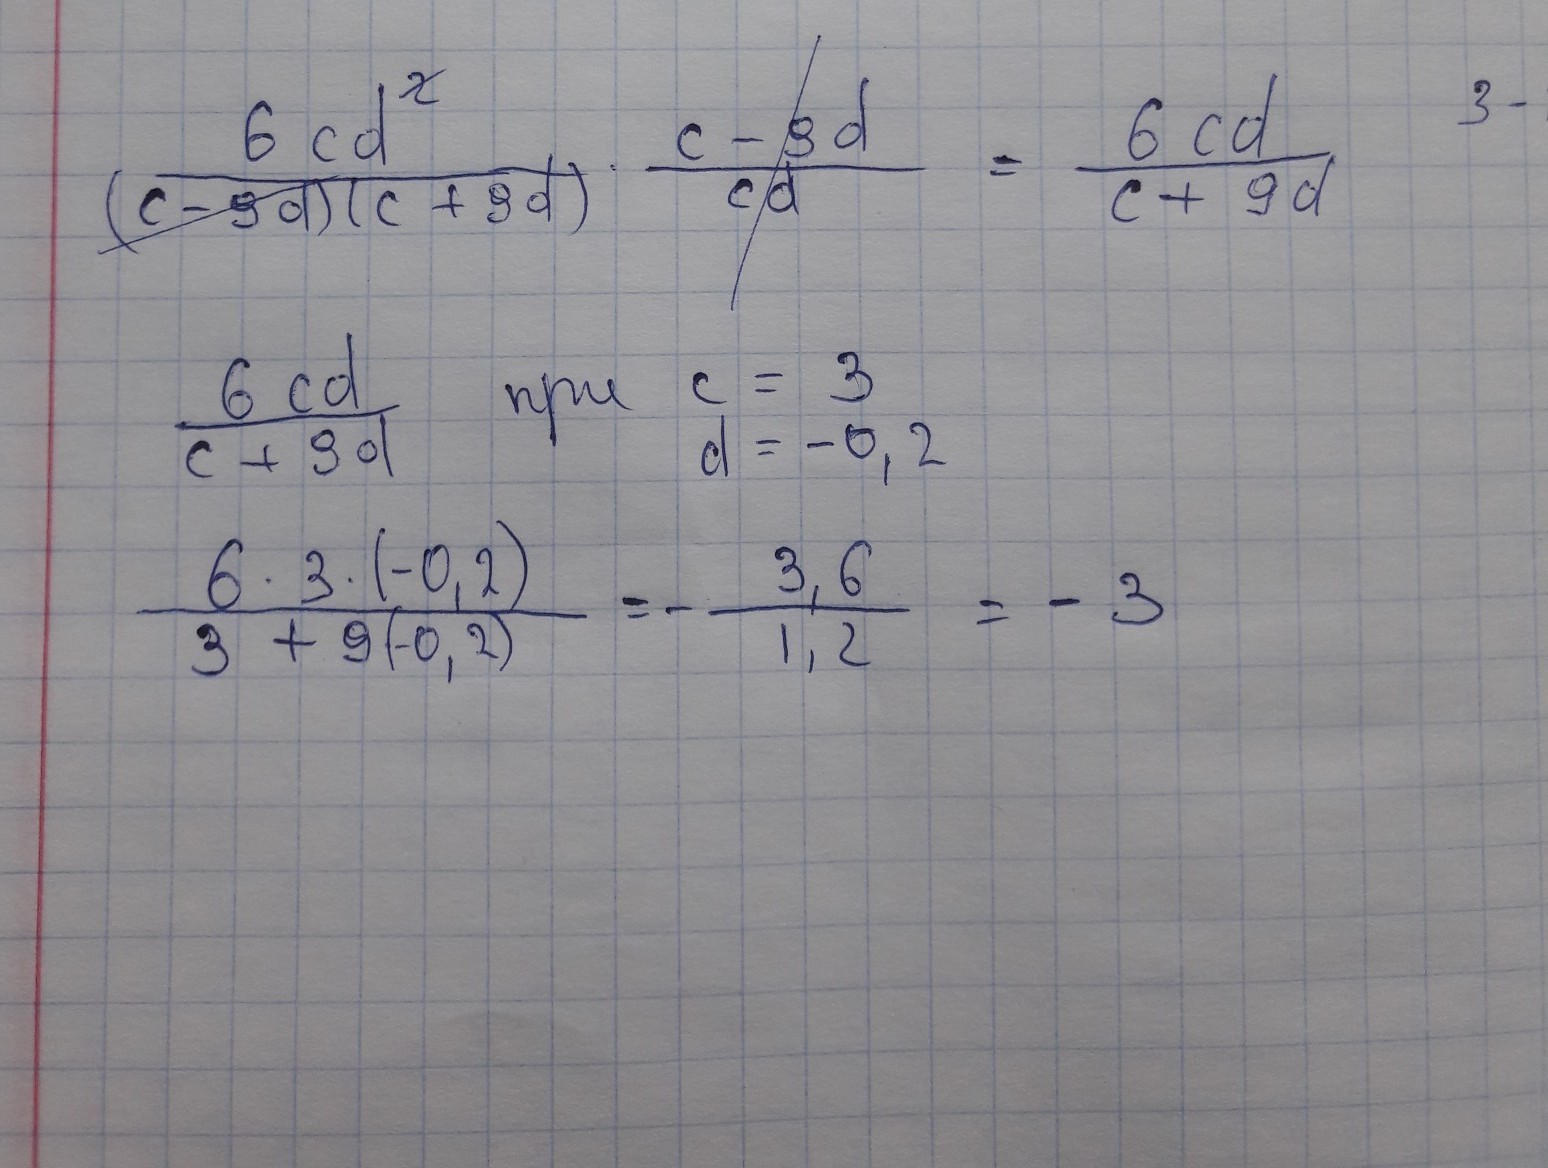 6 cd² / (c - 9d)(c + 9d) · c - 9d / cd = 6 cd / c + 9d 3 -
6 cd / c + 9d при c = 3
d = -0,2
6 · 3 · (-0,2) / 3 + 9(-0,2) = - 3,6 / 1,2 = - 3